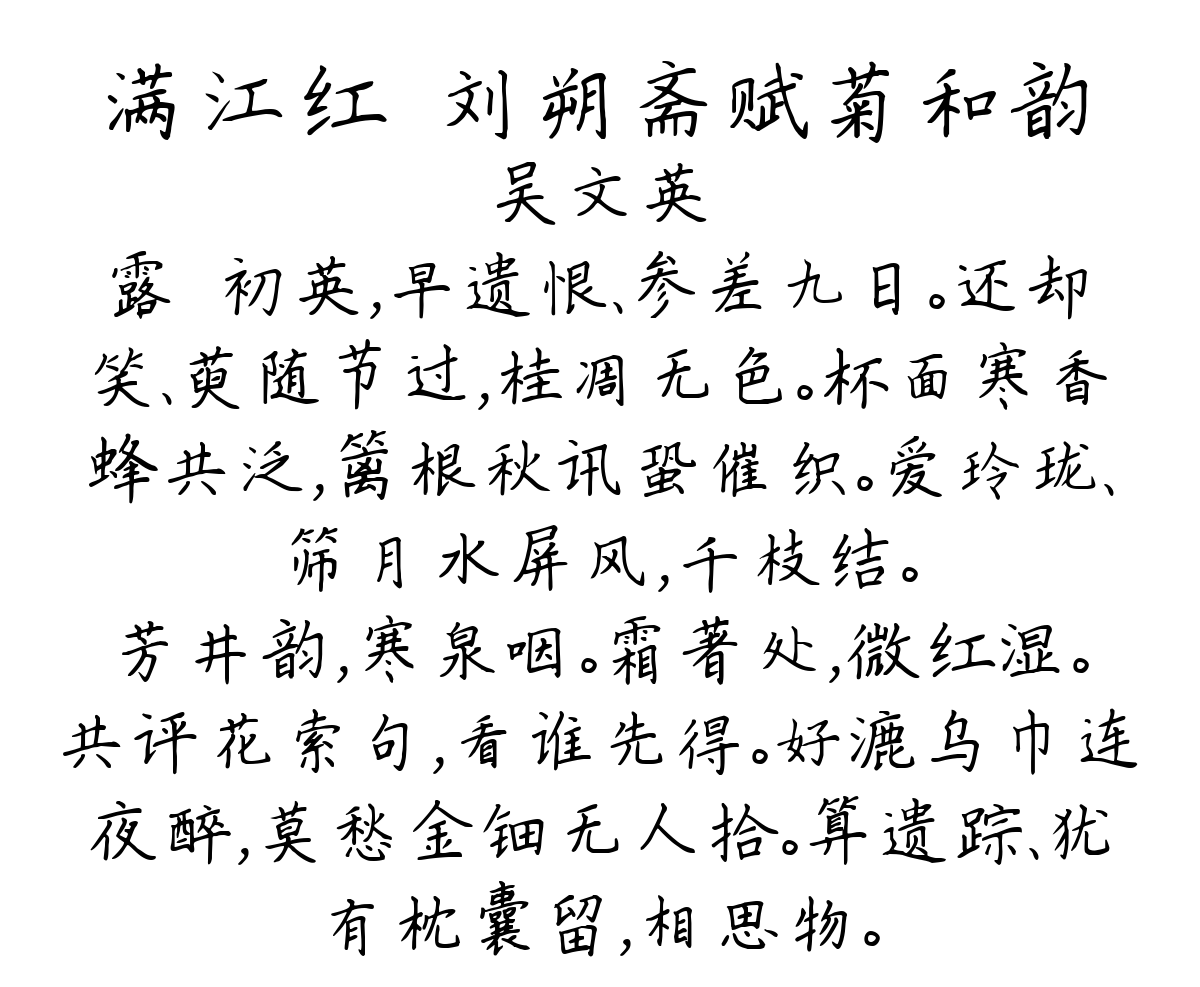 满江红 刘朔斋赋菊和韵
吴文英
露 初英,早遗恨、参差九日。还却
笑、萸随节过,桂凋无色。杯面寒香
蜂共泛,篱根秋讯蛩催织。爱玲珑、
筛月水屏风,千枝结。
芳井韵,寒泉咽。霜著处,微红湿。
共评花索句,看谁先得。好漉乌巾连
夜醉,莫愁金钿无人拾。算遗踪、犹
有枕囊留,相思物。